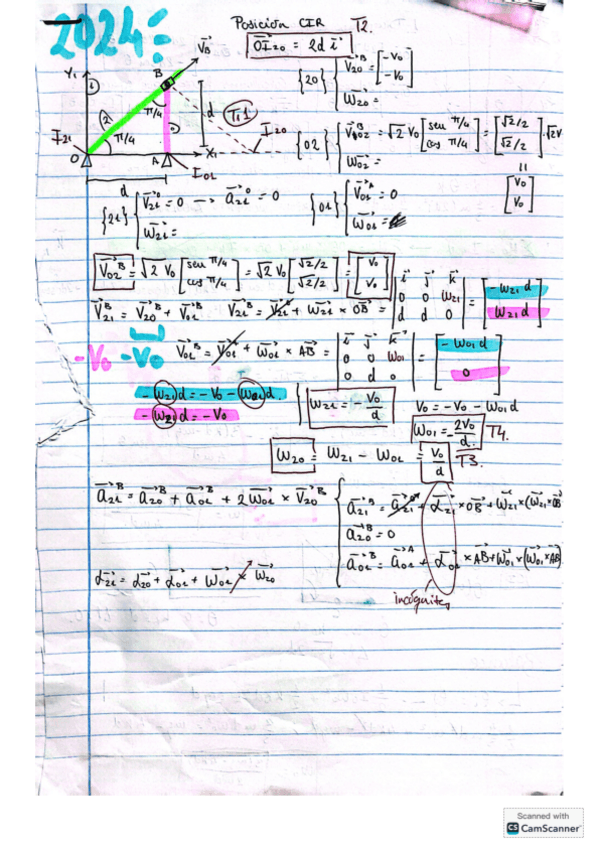 2024:
Posición CIR T2.
OI₂₀ = 2d i
Y₁
V_B
B
π/4
d
T.1
I₂₁
2
π/4
I₂₀
O
A
X₁
I₀₁
d
{20} { V₂₀^B = [-V₀ -V₀]
ω₂₀ =
{02} { V₀₂^B = √2 V₀ [sen π/4 cos π/4] = [√2/2 √2/2] · √2V
ω₀₂ =
=
[V₀ V₀]
{21} { V₂₁^O = 0 → a₂₁^O = 0
ω₂₁ =
{01} { V₀₁^A = 0
ω₀₁ =
V₀₂^B = √2 V₀ [sen π/4 cos π/4] = √2 V₀ [√2/2 √2/2] = [V₀ V₀]
V₂₁^B = V₂₀^B + V₀₁^B V₂₁^B = V₂₁^O + ω₂₁ × OB = | i j k 0 0 ω₂₁ d d 0 | = [-ω₂₁ d ω₂₁ d]
-V₀ -V₀
V₀₁^B = V₀₁^A + ω₀₁ × AB = | i j k 0 0 ω₀₁ 0 d 0 | = [-ω₀₁ d 0]
-ω₂₁ d = -V₀ - ω₀₁ d.
-ω₂₁ d = -V₀
{ ω₂₁ = - V₀/d
V₀ = -V₀ - ω₀₁ d
ω₀₁ = - 2V₀/d T4.
ω₂₀ = ω₂₁ - ω₀₁ = V₀/d T3.
a₂₁^B = a₂₀^B + a₀₁^B + 2 ω₀₁ × V₂₀^B
{ a₂₁^B = a₂₁^O + α₂₁ × OB + ω₂₁ × (ω₂₁ × OB
a₂₀^B = 0
a₀₁^B = a₀₁^A + α₀₁ × AB + ω₀₁ × (ω₀₁ × AB)
α₂₁ = α₂₀ + α₀₁ + ω₀₁ × ω₂₀
incógnitas
Scanned with
CS CamScanner